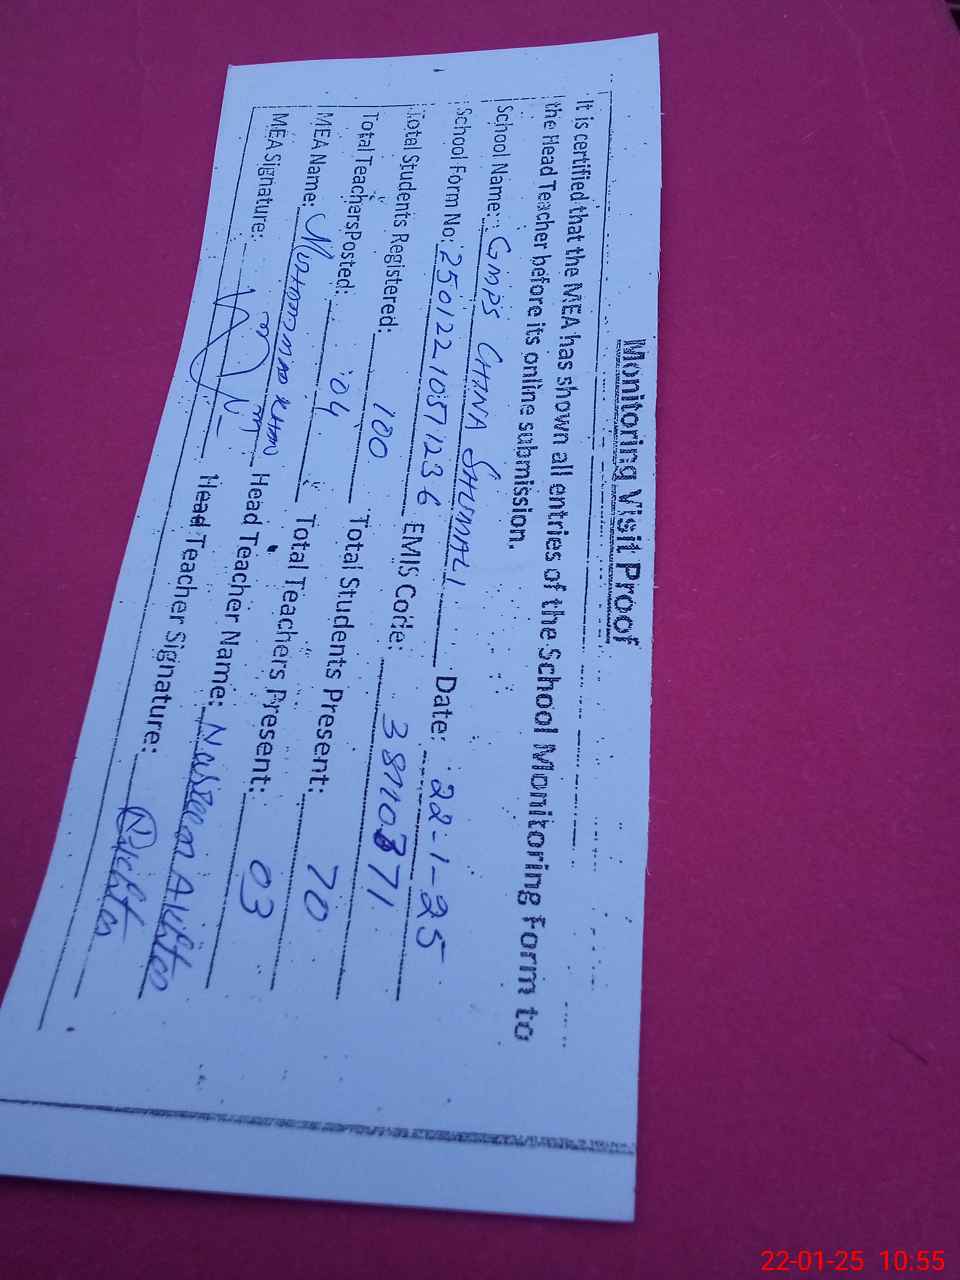 Monitoring Visit Proof
It is certified that the MEA has shown all entries of the School Monitoring Form to
the Head Teacher before its online submission.
School Name: GMPS CHINA SHUMALI Date: 22-1-25
School Form No: 250122_1051236 EMIS Code: 38110371
Total Students Registered: 100 Total Students Present: 70
Total Teachers Posted: 04 Total Teachers Present: 03
MEA Name: Muhammad Khan Head Teacher Name: Nasreen Akhtar
MEA Signature: Head Teacher Signature:
22-01-25 10:55